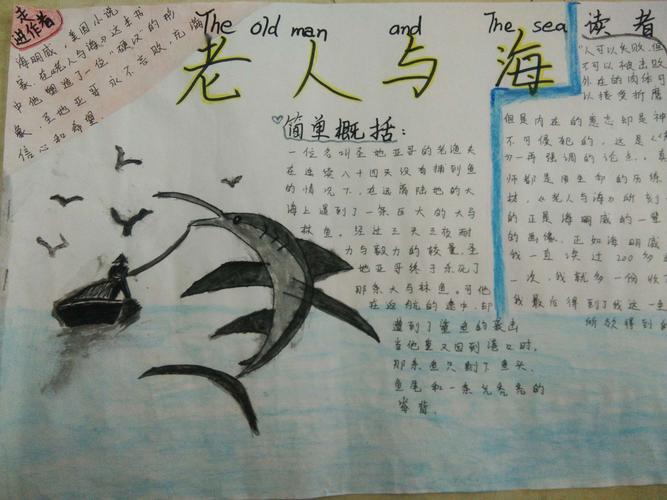 走
进作者
海明威，美国小说
家．在《老人与海》这本书
中他塑造了一位“硬汉”的形
象．圣地亚哥永不言败，充满
信心和希望．
The old man and The sea
老人与海
简单概括：
一位名叫圣地亚哥的老渔夫
在连续八十四天没有捕到鱼
的情况下，在远离陆地的大
海上遇到了一条巨大的大马
林鱼。经过三天三夜耐
力与毅力的较量，圣
地亚哥终于杀死了
那条大马林鱼。可他
在返航的途中，却
遭到了鲨鱼的袭击
当他重又回到港口时，
那条鱼只剩下鱼头、
鱼尾和一条光秃秃的
脊背．
读者
“人可以失败，但
不可以被击败
外在的肉体可
以接受折磨
但是内在的意志却是神
不可侵犯的，这是《
一再强调的论点．
师都是用生命的历练
材，《老人与海》所刻
的正是海明威的一
的画像．正如海明威
我一直 过200多
一次，我就多一份收
我最后得到了我这一生
所欲得到的